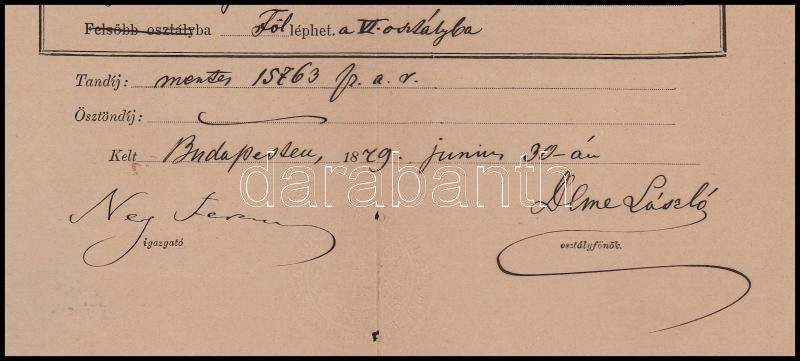 Felsőbb osztályba Föl léphet. a VI. osztályba
Tandíj: mentes 15763 sz. a. r.
Ösztöndíj:
Kelt Budapesten, 1879. junius 30-án
darabanth
Ney Ferenc
igazgató
Dlme László
osztályfőnök.